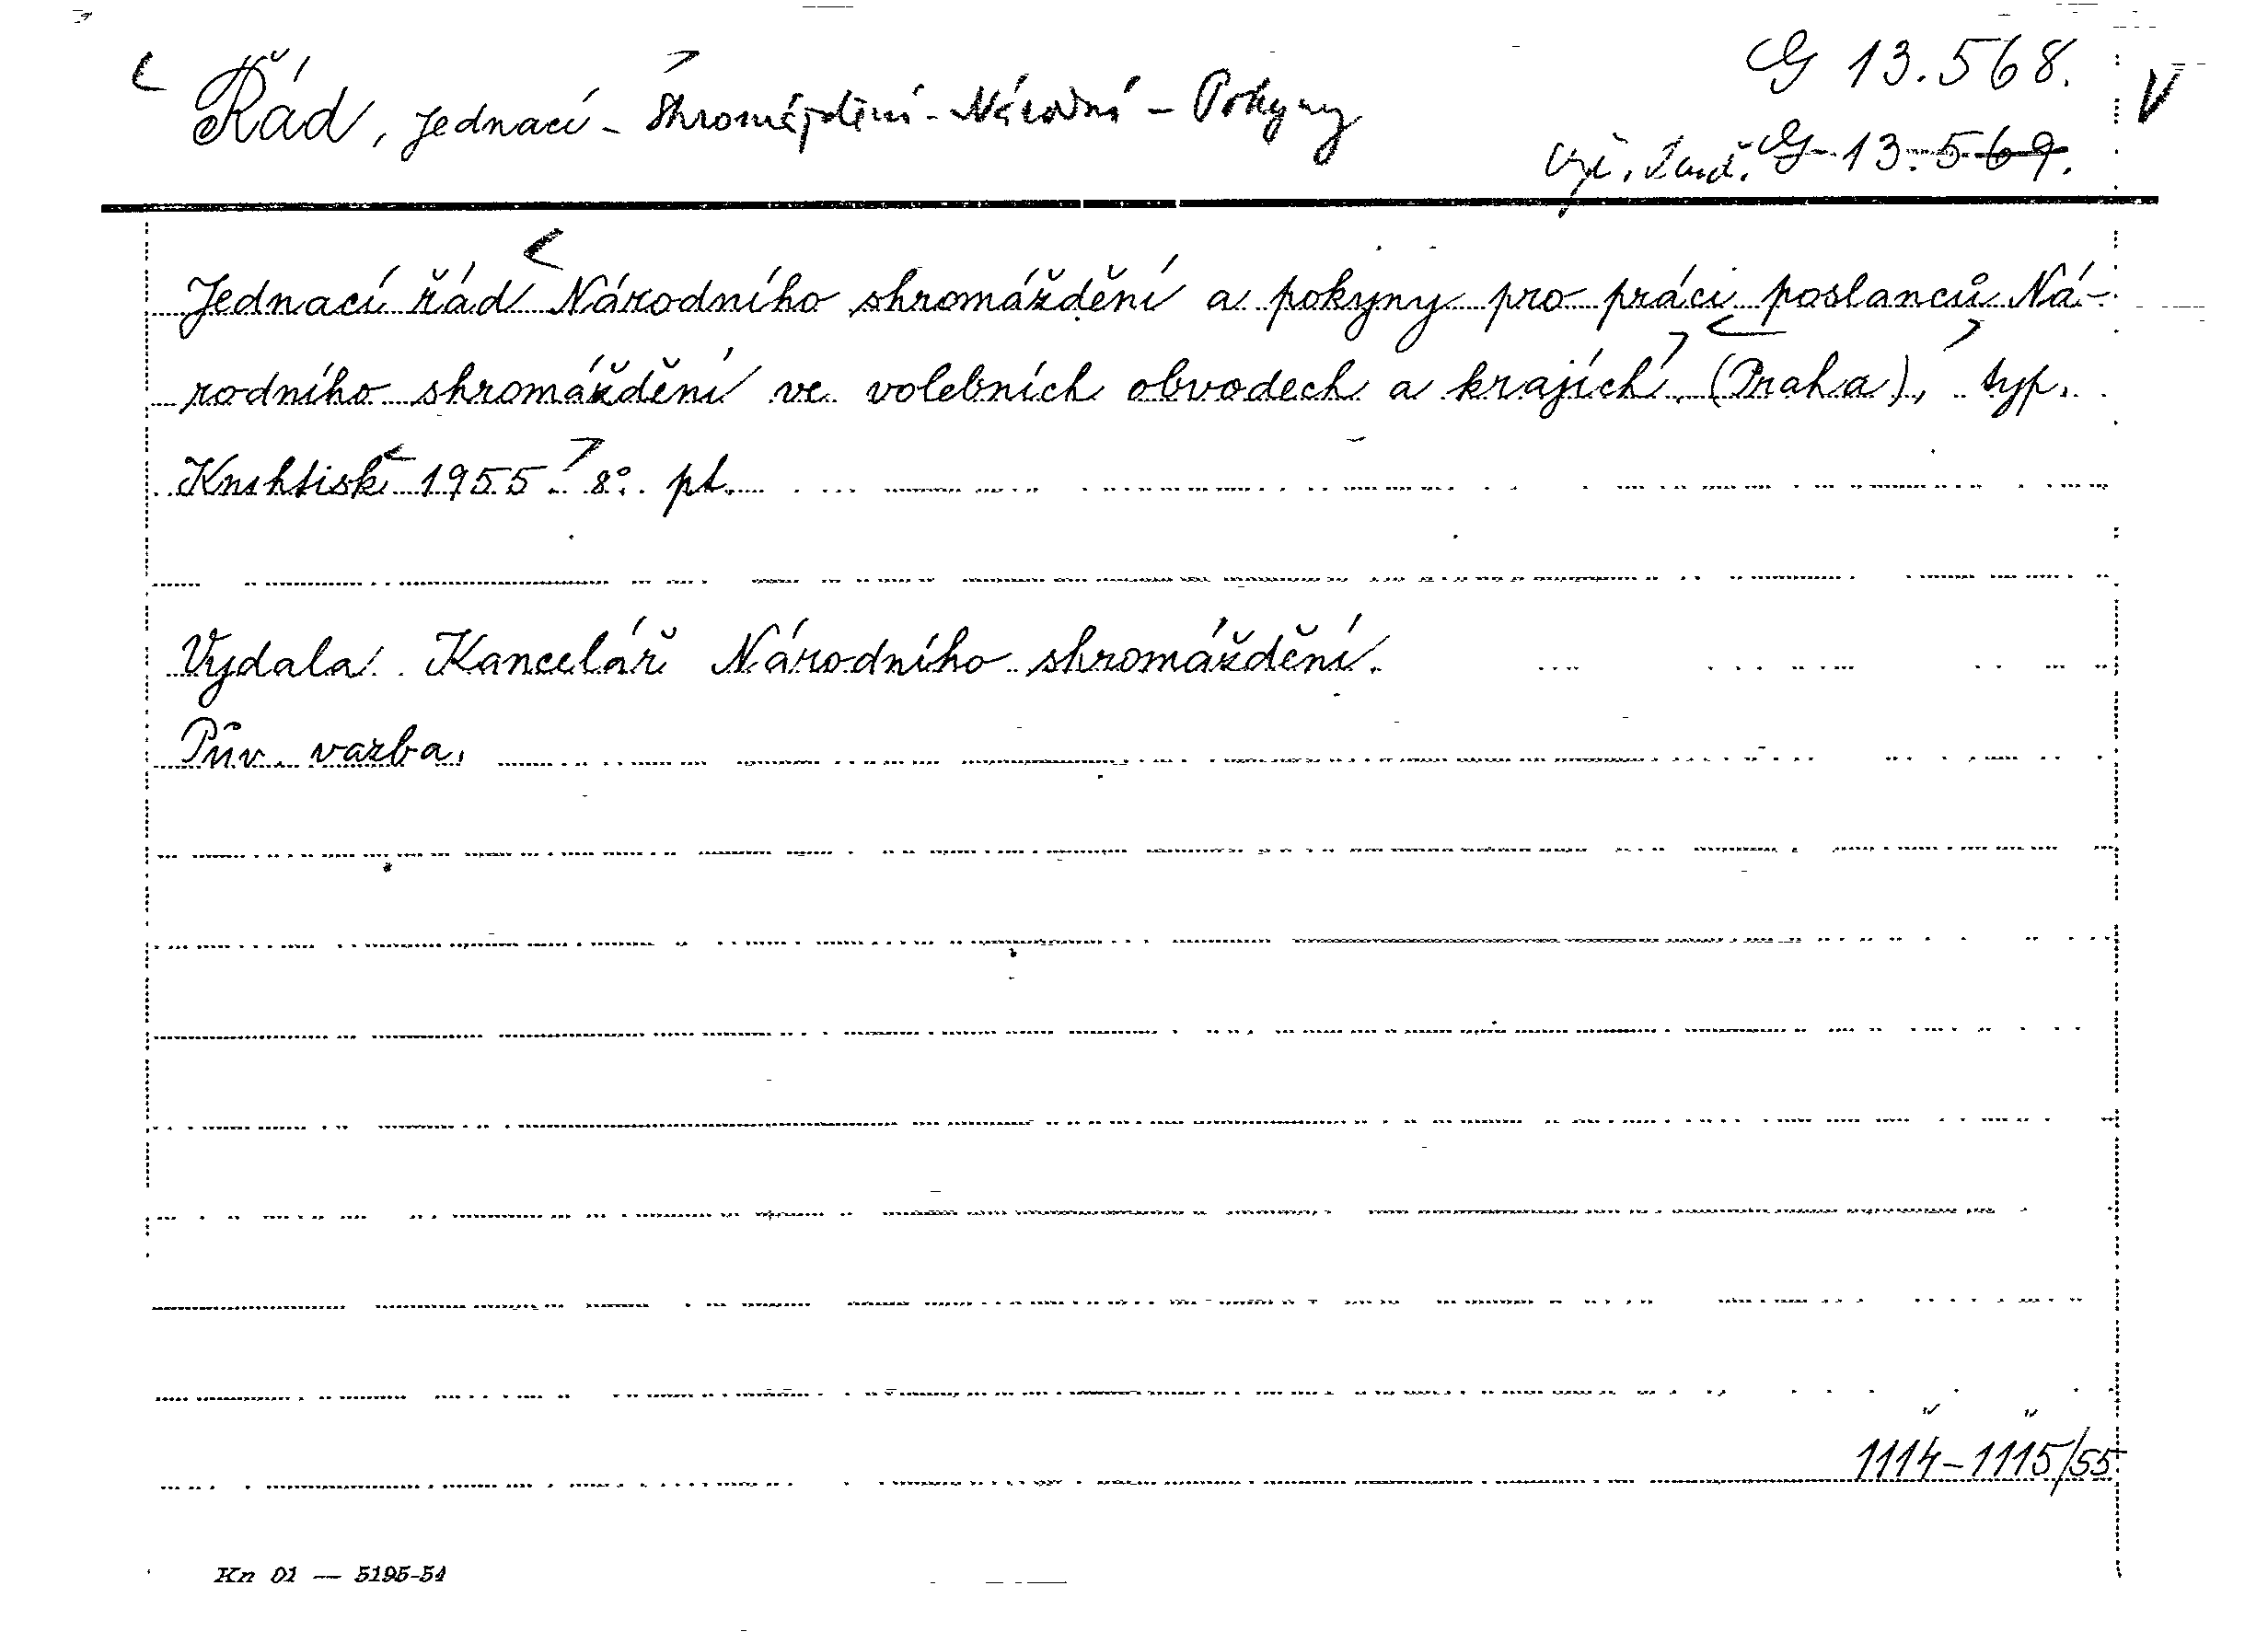 Řád, jednací - Shromáždění - Národní - Pokyny
G 13.568.
V
G 13.569.
Jednací řád Národního shromáždění a pokyny pro práci poslanců Ná-
rodního shromáždění ve volebních obvodech a krajích. (Praha), typ.
Knihtisk 1955. 8°. pt.
Vydala Kancelář Národního shromáždění.
Pův. vazba.
1114-1115/55
Kn 01 — 5195-54